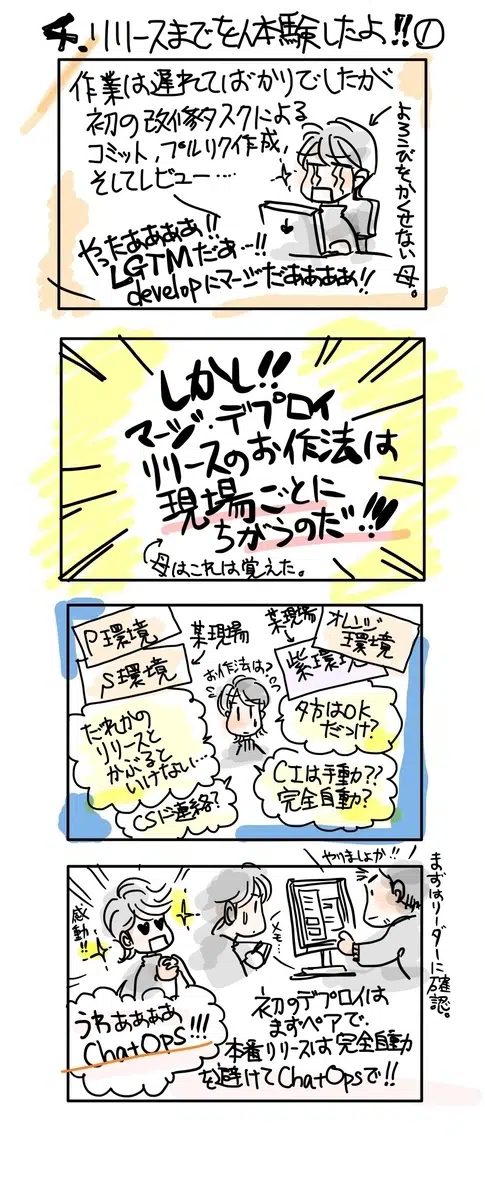 チ、リリースまでをん本験したよ!!①
作業は遅れてばかりでしたが
初の改修タスクによる
コミット,プルリク作成,
そしてレビュー……
よろこびをかくせない母。
やったああああ!!
LGTMだぁ…!!
developにマージだああああ!!
しかし!!
マージ・デプロイ
リリースのお作法は
現場ごとに
ちがうのだ!!!
母はこれは覚えた。
P環境
S環境
某現場
某現場
オレンジ
環境
紫環境
お作法は?
だれかの
リリースと
かぶると
いけない…
CSに連絡?
夕方はOK
だっけ?
CIは手動??
完全自動?
やりましょか!!
まずはリーダーに確認。
感動!!
メモ…
うわぁぁぁぁ
ChatOps!!!
初のデプロイは
まずペアで、
本番リリースは完全自動
を避けてChatOpsで!!